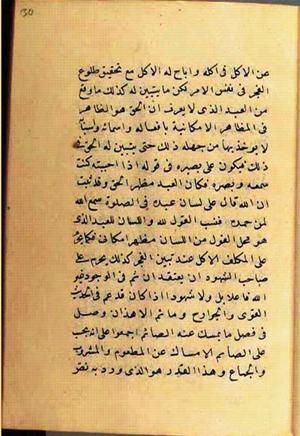 عن الاكل فى اكله واباح له الاكل مع تحقيق طلوع
الفجر فى نفس الامر لكن ما يتبين له كذلك ما وقع
من العبد الذى لا يعرف ان الحق هو الظاهر
فى المظاهر الامكانية بافعاله واسمائه
لا يوخذ بها من جهله ذلك حتى يتبين له الحق فى
ذلك فيكون على بصيره فى قوله اذا احببته كنت
سمعه وبصره فكان العبد مظهر الحق وقد ثبت
ان الله قال على لسان عبده فى الصلوة سمع الله
لمن حمده فنسب القول لله واللسان للعبد الذى
هو محل القول من اللسان مظهر امكانى فكما يحرم
على المكلف الاكل عند تبين الفجر كذلك يحرم على
صاحب الشهود ان يعتقد ان ثم فى الوجود غير
الله فاعلا بل ولا مشهودا اذ كان قد عم فى الحديث
القوى والجوارح وما ثم الا هذان وصل
فى فصل ما يمسك عنه الصائم اجمعوا على انه يجب
على الصائم الامساك عن المطعوم والمشروب
والجماع وهذا القدر هو الذى ورد به نص